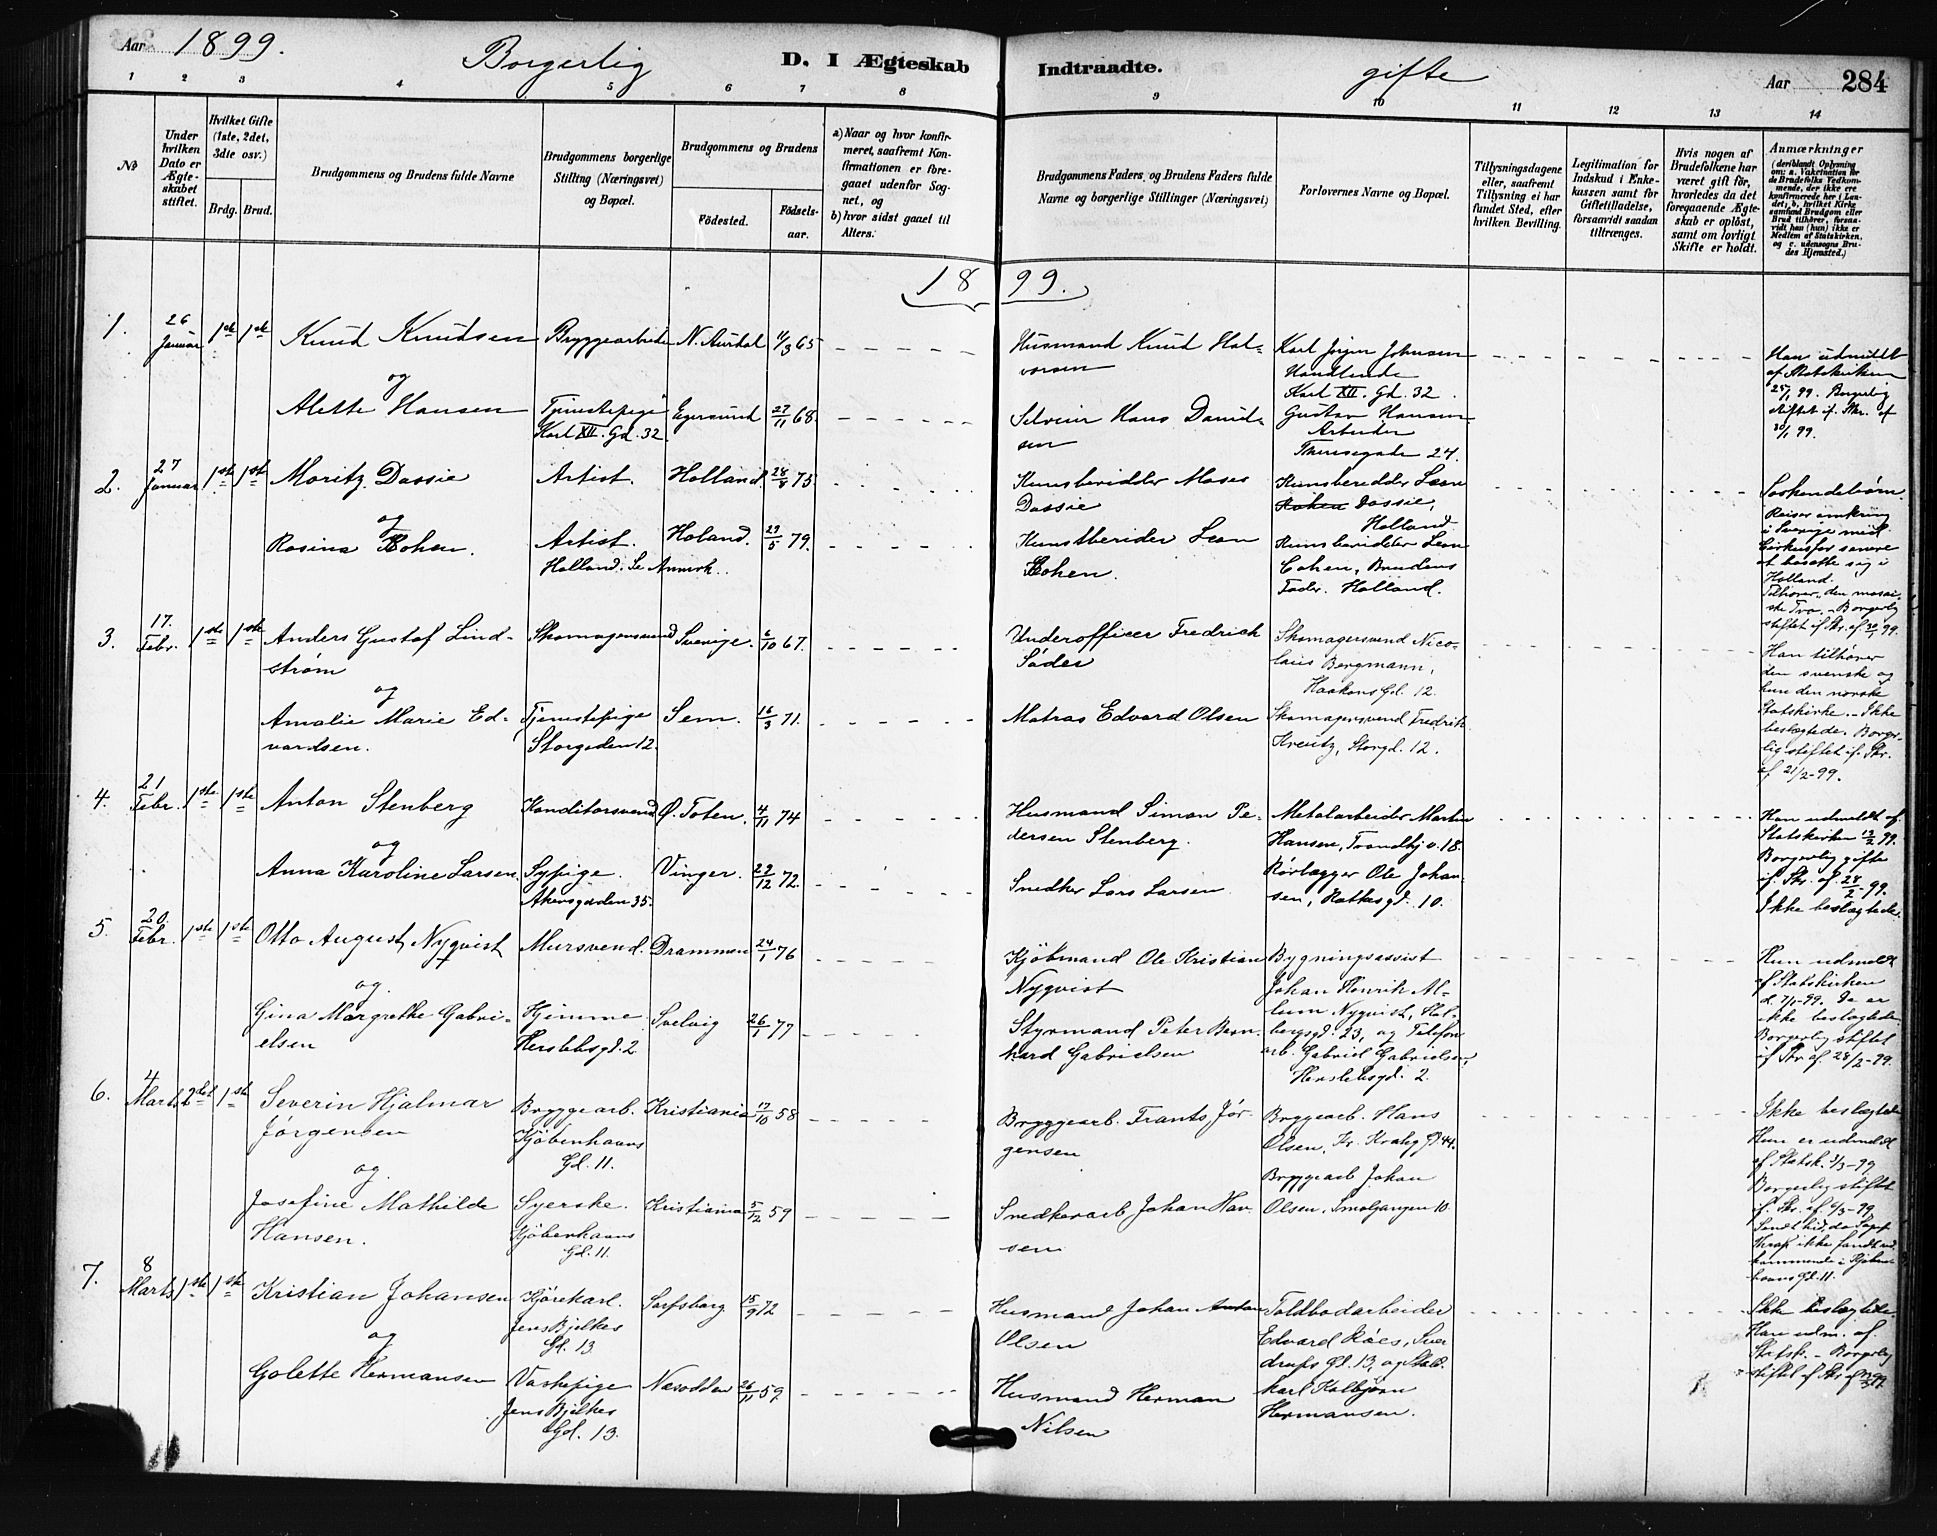 Aar 1899.
Borgerlig
D. I Ægteskab
Indtraadte.
gifte
Aar 284
1 2 3 4 5 6 7 8 9 10 11 12 13 14
No
Under hvilken Dato er Ægteskabet stiftet.
Hvilket Gifte (1ste, 2det, 3die osv.)
Brdg. Brud.
Brudgommens og Brudens fulde Navne
Brudgommens borgerlige Stilling (Næringsvei) og Bopæl.
Brudgommens og Brudens
Födested. Födsels-aar.
a) Naar og hvor konfirmeret, saafremt Konfirmationen er foregaaet udenfor Sognet, og
b) hvor sidst gaaet til Alters.
Brudgommens Faders og Brudens Faders fulde Navne og borgerlige Stillinger (Næringsvei)
Forlovernes Navne og Bopæl.
Tillysningsdagene eller, saafremt Tillysning ei har fundet Sted, efter hvilken Bevilling.
Legitimation for Indskud i Enkekassen samt for Giftetilladelse, forsaavidt saadan tiltrænges.
Hvis nogen af Brudefolkene har været gift för, hvorledes da det foregaaende Ægteskab er oplöst, samt om lovligt Skifte er holdt.
Anmærkninger
(deriblandt Oplysning om: a. Vakcination for de Brudefolks Vedkommende, der ikke ere konfirmerede her i Landet; b. hvilket Kirkesamfund Brudgom eller Brud tilhörer, forsaavidt han (hun) ikke er Medlem af Statskirken, og c. udensogns Brudes Hjemsted.)
1899.
1. 26 Januar 1ste 1ste Knud Knudsen Bryggearbeider N. Aurdal 11/3 65
Husmand Knud Halvorsen
Karl Jörgen Johnsen Handlende Karl XII. Gd. 32.
Han udmeldt af Statskirken 25/1 99. Borgerlig stiftet if. Skr. af 30/1 99.
og
Alette Hansen Tjenestepige Karl XII. Gd. 32. Egersund 27/11 68.
Selveier Hans Danielsen
Gustav Hansen Arbeider Theresegate 24.
2. 27 Januar 1ste 1ste Moritz Dassie Artist. Holland. 28/8 75
Kunsberidder Moses Dassie
Kunsberedder Leon Kohen Dassie, Holland
Söskendebörn. Reiser omkring i Sverige med Cirkus for senere at bosætte sig i Holland. Tilhörer den mosaiske Tro. - Borgerlig stiftet if Skr. af 30/1 99.
og
Rosina Kohen. Artist. Holland. Se Anmerk. Holand. 29/5 79.
Kunstberider Leon Kohen.
Kunsberidder Leon Cohen, Brudens Fader. Holland.
3. 17. Febr. 1ste 1ste Anders Gustaf Lindström Skomagersvend Sverige. 6/10 67.
Underofficer Fredrich Söder
Skomagersvend Nicolaus Bergmann, Haakons Gd. 12.
Han tilhörer den svenske og hun den norske Statskirke. - Ikke beslægtede. Borgerlig stiftet if. Skr. af 21/2-99.
og
Amalie Marie Edvardsen. Tjenestepige Storgaden 12. Sem. 16/3 71.
Matros Edvard Olsen
Skomagersvend Fredrik Kreutz, Storgd. 12.
4. 21 Febr. 1ste 1ste Anton Stenberg Konditorsvend Ö. Toten. 4/11 74
Husmand Simon Pedersen Stenberg.
Metalarbeider Martin Hansen, Trondhj v. 18.
Han udmeldt af Statskirken 13/2 99. Borgerlig gifte if. Skr. af 28/2 99. Ikke beslægtede.
og
Anna Karoline Larsen. Sypige. Akersgaden 35. Vinger. 29/12 72.
Snedker Lars Larsen
Rörlægger Ole Johansen, Ratkesgt. 10.
5. 20. Febr. 1ste 1ste Otto August Nyqvist Mursvend. Drammen 24/1 76
Kjöbmand Ole Kristian Nyqvist
Bygningsassist Johan Henrik Album Nyqvist, Holbergsgd. 23, og Telefonarb. Gabriel Gabrielsen, Herslebsgd. 2.
Hun udmeldt af Statskirken d. 7/1-99. De er ikke beslægtede Borgerlig stiftet if Skr af 28/2-99.
og
Gina Margrethe Gabrielsen Hjemme Herslebsgd. 2 Svelvig 26/1 77
Styrmand Peter Bernhard Gabrielsen
6. 4 Marts 2det 1ste Severin Hjalmar Jörgensen Bryggearb. Kjöbenhavns Gd. 11. Kristiania 17/10 58
Bryggearb. Frants Jörgensen
Bryggearb. Hans Olsen, Kr. Krohg Gd. 44.
Ikke beslægtede Hun er udmeldt af Statsk. 3/3-99 Borgerlig stiftet if. Skr. af 6/3-99. Sendt hid, da
og
Josefine Mathilde Hansen. Syerske. Kjöbenhavns Gd. 11. Kristiania 5/12 59
Snedkerarb Johan Hansen
Bryggearb Johan Olsen. Smalgangen 10
7. 8 Marts 1ste 1ste Kristian Johansen Kjörekarl. Jens Bjelkes Gd. 13 Sarfsborg 15/9 72
Husmand Johan Anton Olsen
Toldbodarbeider Edvard Röes, Sverdrups Gd. 13, og Stald. karl Kolbjörn Hermansen.
Ikke beslægtede. Han udm. af. Statsk. - Borgerlig stiftet if Skr af
og
Golette Hermansen Vaskepige Jens Bjelkes Gd. 13. Næsodden 26/11 59.
Husmand Herman Nilsen